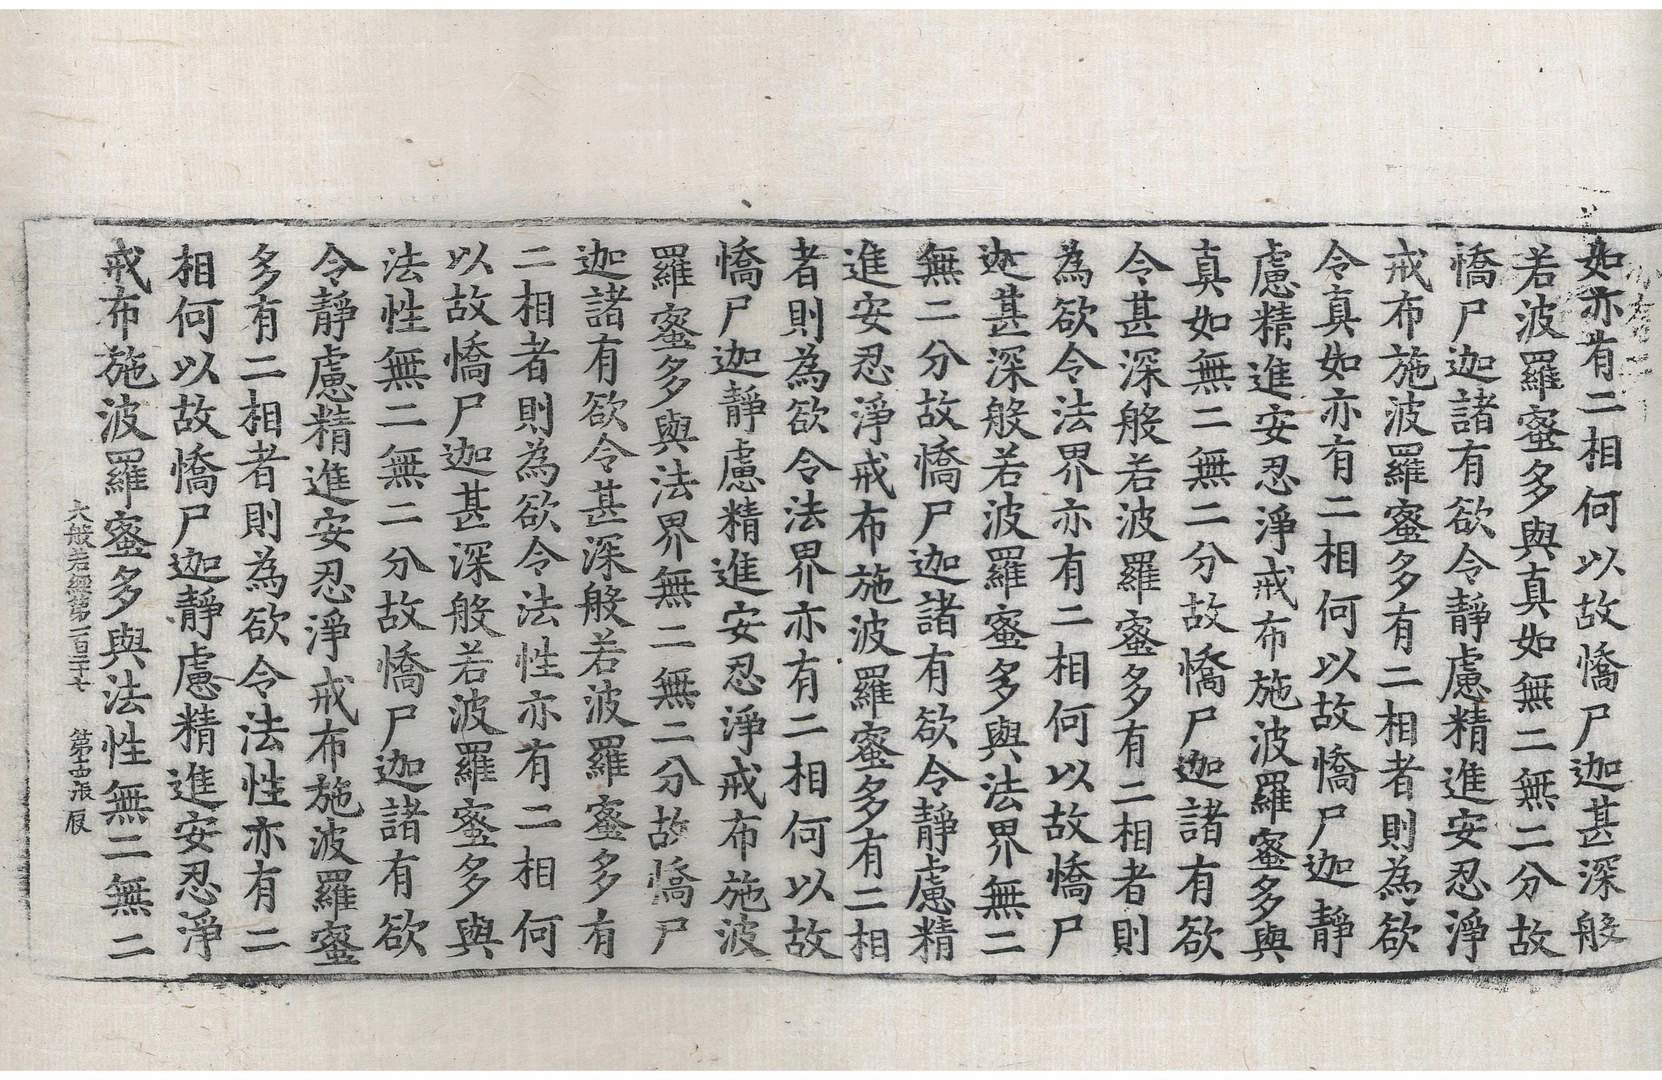 如亦有二相何以故憍尸迦甚深般
若波羅蜜多與真如無二無二分故
憍尸迦諸有欲令靜慮精進安忍淨
戒布施波羅蜜多有二相者則為欲
令真如亦有二相何以故憍尸迦靜
慮精進安忍淨戒布施波羅蜜多與
真如無二無二分故憍尸迦諸有欲
令甚深般若波羅蜜多有二相者則
為欲令法界亦有二相何以故憍尸
迦甚深般若波羅蜜多與法界無二
無二分故憍尸迦諸有欲令靜慮精
進安忍淨戒布施波羅蜜多有二相
者則為欲令法界亦有二相何以故
憍尸迦靜慮精進安忍淨戒布施波
羅蜜多與法界無二無二分故憍尸
迦諸有欲令甚深般若波羅蜜多有
二相者則為欲令法性亦有二相何
以故憍尸迦甚深般若波羅蜜多與
法性無二無二分故憍尸迦諸有欲
令靜慮精進安忍淨戒布施波羅蜜
多有二相者則為欲令法性亦有二
相何以故憍尸迦靜慮精進安忍淨
戒布施波羅蜜多與法性無二無二
大般若經第一百二十七 第十四張 辰